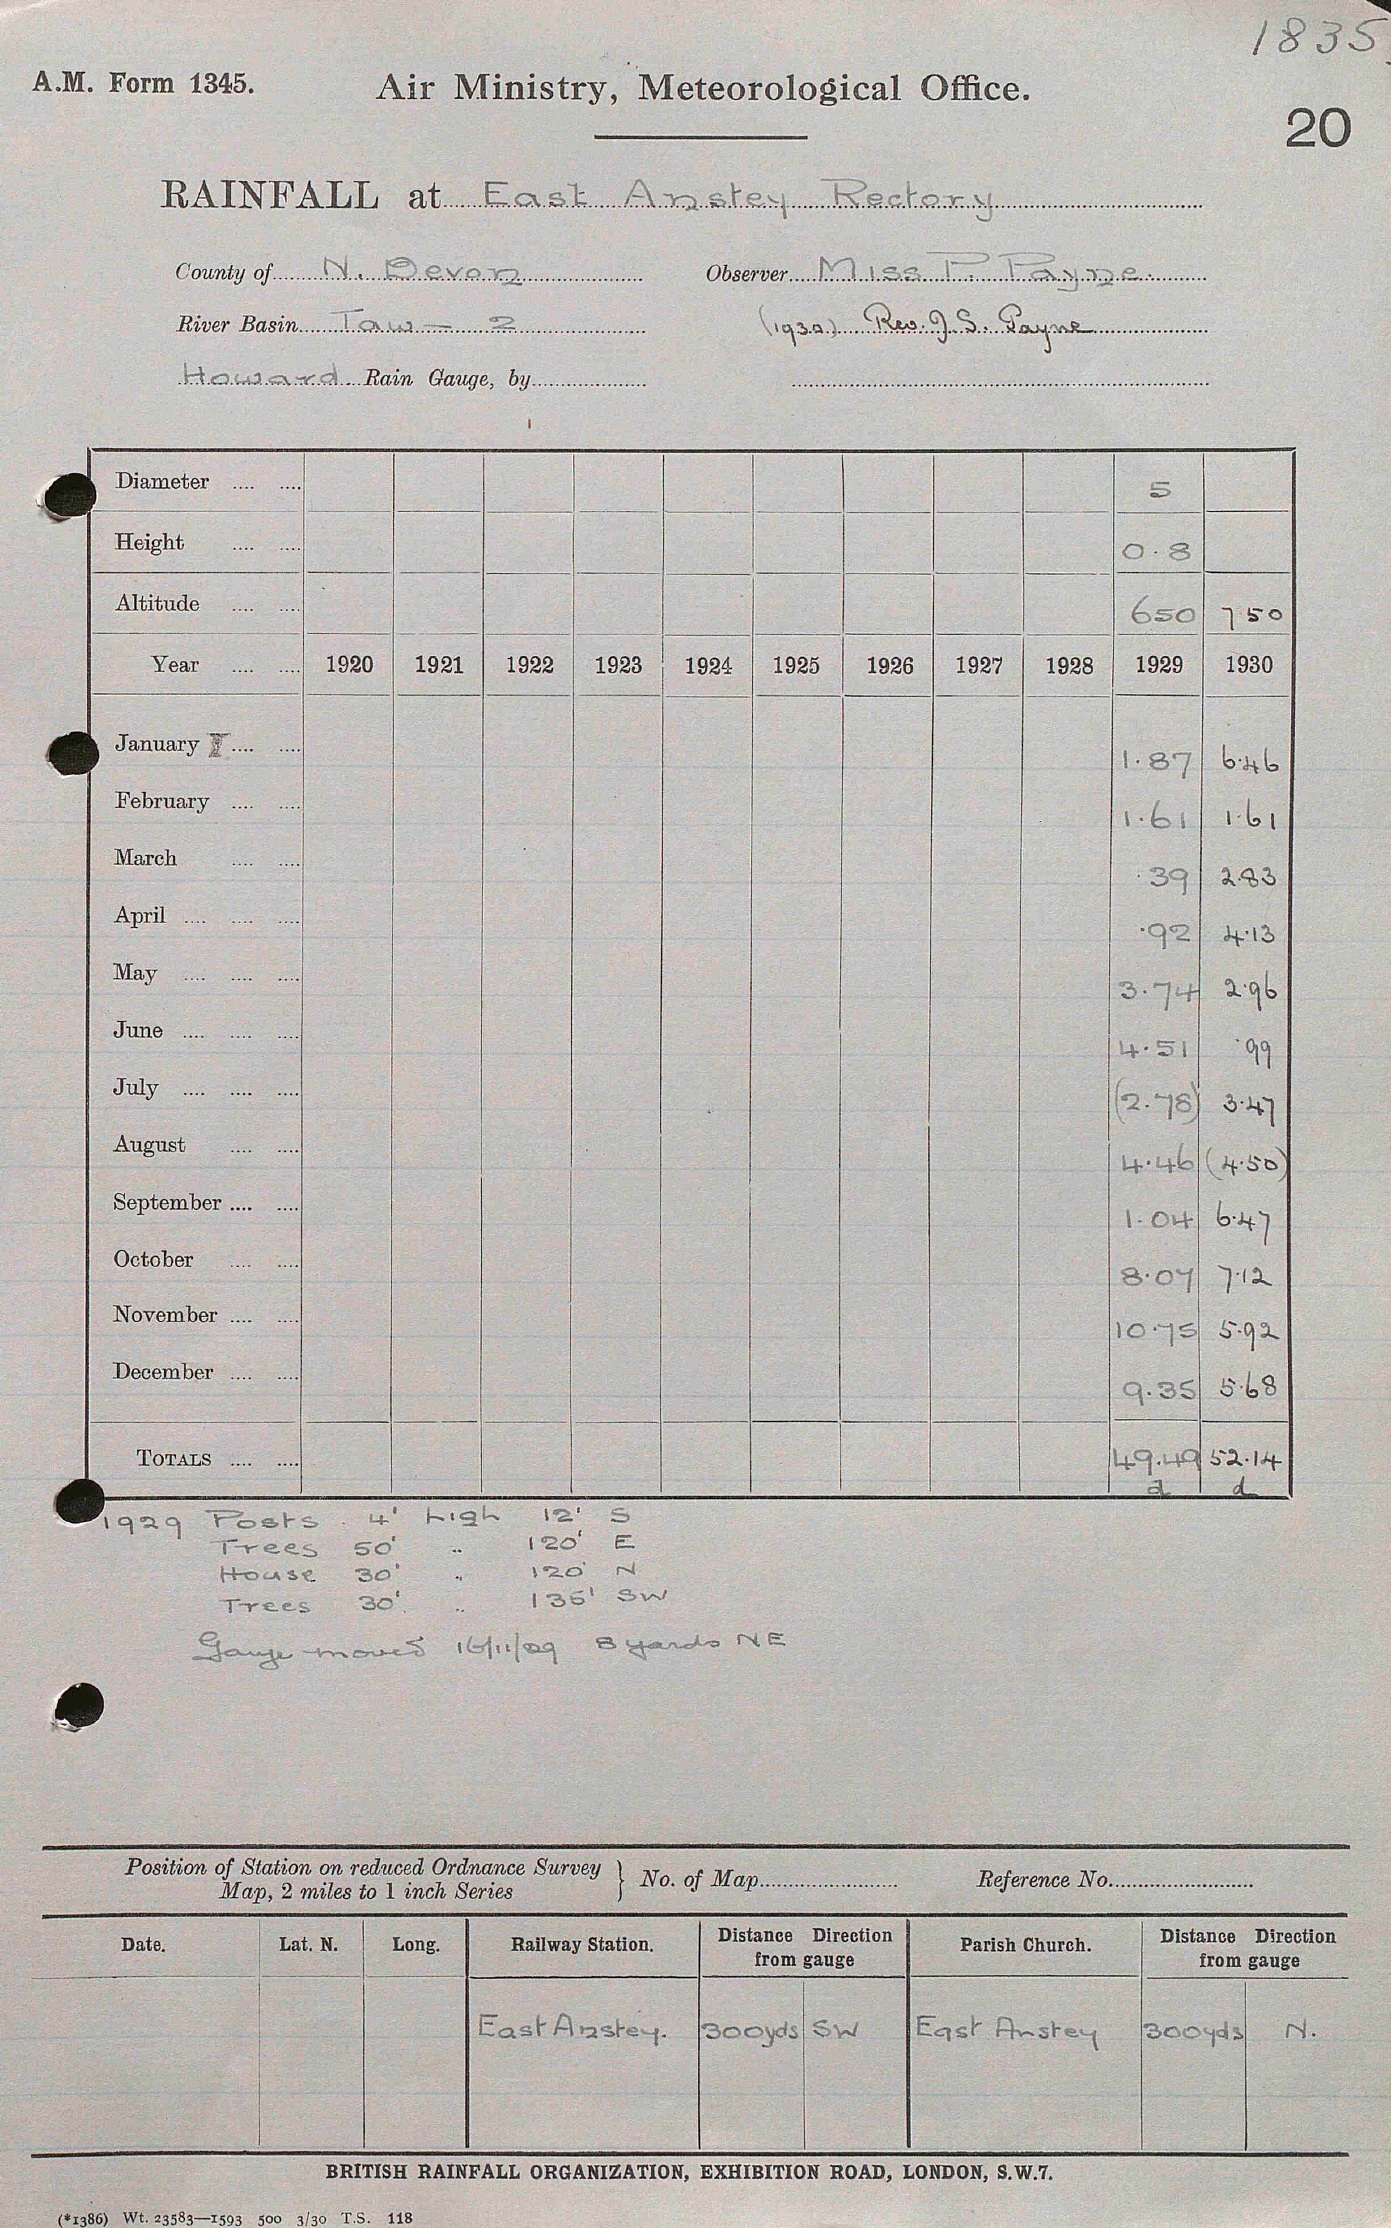 1835
A.M. Form 1345.
Air Ministry, Meteorological Office.
20
RAINFALL at East Anstey Rectory
County of N. Devon Observer Miss P. Payne
River Basin Taw — 2 (1930) Rev. J. S. Payne
Howard Rain Gauge, by
Diameter .... .... 5
Height .... .... 0.8
Altitude .... .... 650 750
Year .... .... 1920 1921 1922 1923 1924 1925 1926 1927 1928 1929 1930
January .... .... 1.87 6.46
February .... .... 1.61 1.61
March .... .... .39 2.83
April .... .... .... .92 4.13
May .... .... .... 3.74 2.96
June .... .... .... 4.51 .99
July .... .... .... (2.78) 3.47
August .... .... 4.46 (4.50)
September .... .... 1.04 6.47
October .... .... 8.07 7.12
November .... .... 10.75 5.92
December .... .... 9.35 5.68
TOTALS .... .... 49.49 52.14
d d
1929 Posts 4' high 12' S
Trees 50' " 120' E
House 30' " 120' N
Trees 30' " 135' SW
Gauge moved 16/11/29 8 yards NE
Position of Station on reduced Ordnance Survey
Map, 2 miles to 1 inch Series } No. of Map Reference No.
Date. Lat. N. Long. Railway Station. Distance Direction from gauge Parish Church. Distance Direction from gauge
East Anstey. 300yds SW East Anstey 300yds N.
BRITISH RAINFALL ORGANIZATION, EXHIBITION ROAD, LONDON, S.W.7.
(*1386) Wt. 23583—1593 500 3/30 T.S. 118